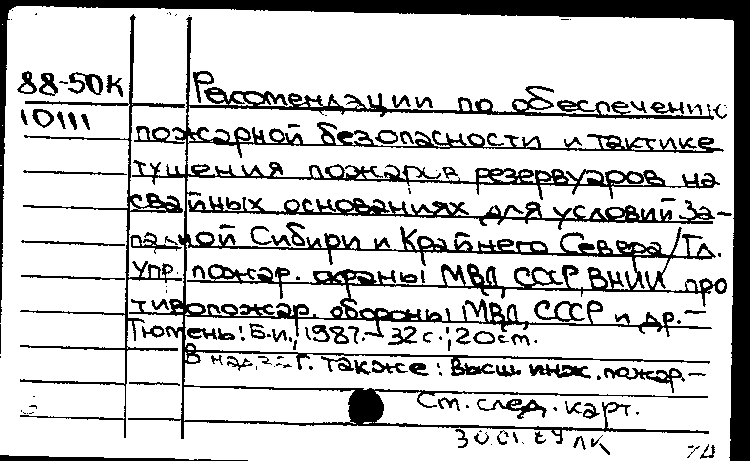 88-50К Рекомендации по обеспечению
10111 пожарной безопасности и тактике
тушения пожаров резервуаров на
свайных основаниях для условий За-
падной Сибири и Крайнего Севера/Гл.
Упр. пожар. охраны МВД СССР, ВНИИ про
тивопожар. обороны МВД СССР и др.-
Тюмень: Б.и., 1987.-32с.; 20см.
В надзаг. также: Высш. инж. пожар.-
См. след. карт.
30.01.89 ЛК